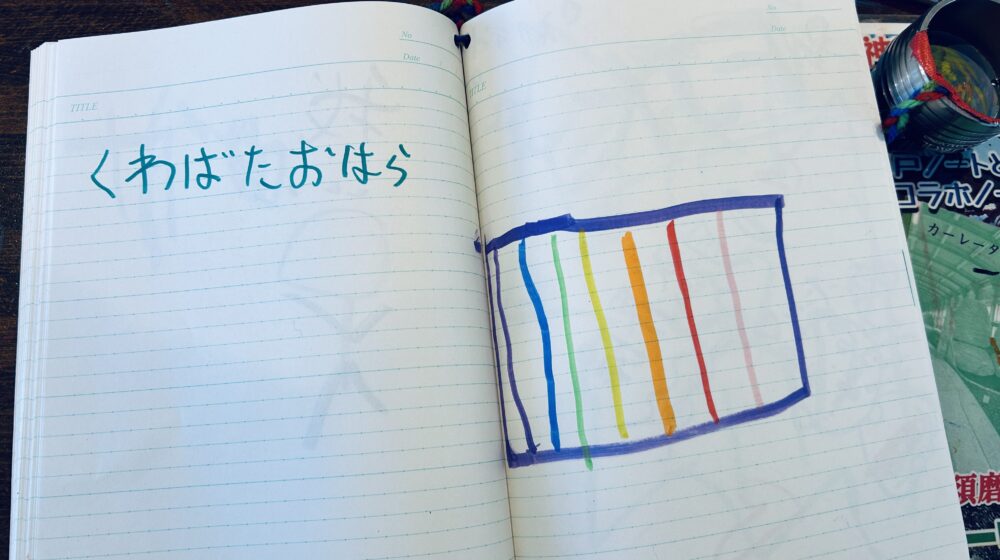 No
Date
TITLE
くわばたおはら
No
Date
TITLE
神
戸ノートと
コラボノー
カーレータ
須磨